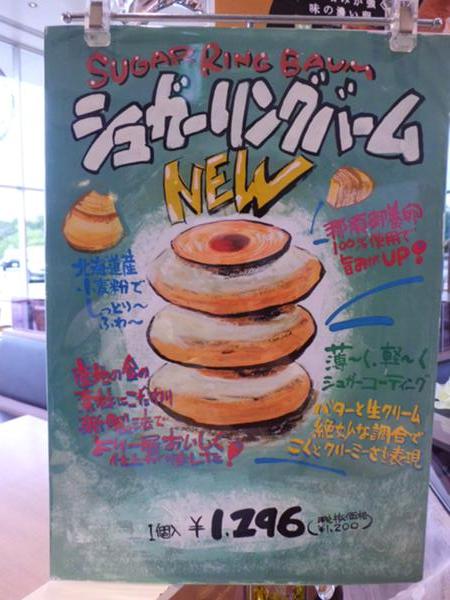 味の濃い卵
SUGAR RING BAUM
シュガーリングバーム
NEW
那須御養卵
100%使用で
旨みがUP!
北海道産
小麦粉で
しっとり〜
ふわ〜
薄〜く、軽〜く
シュガーコーティング
製法で
より一層おいしく
仕上がりました!
バターと生クリーム
絶妙な調合で
コクとクリーミーさを表現
1個入 ¥1,296 (税抜価格 ¥1,200)